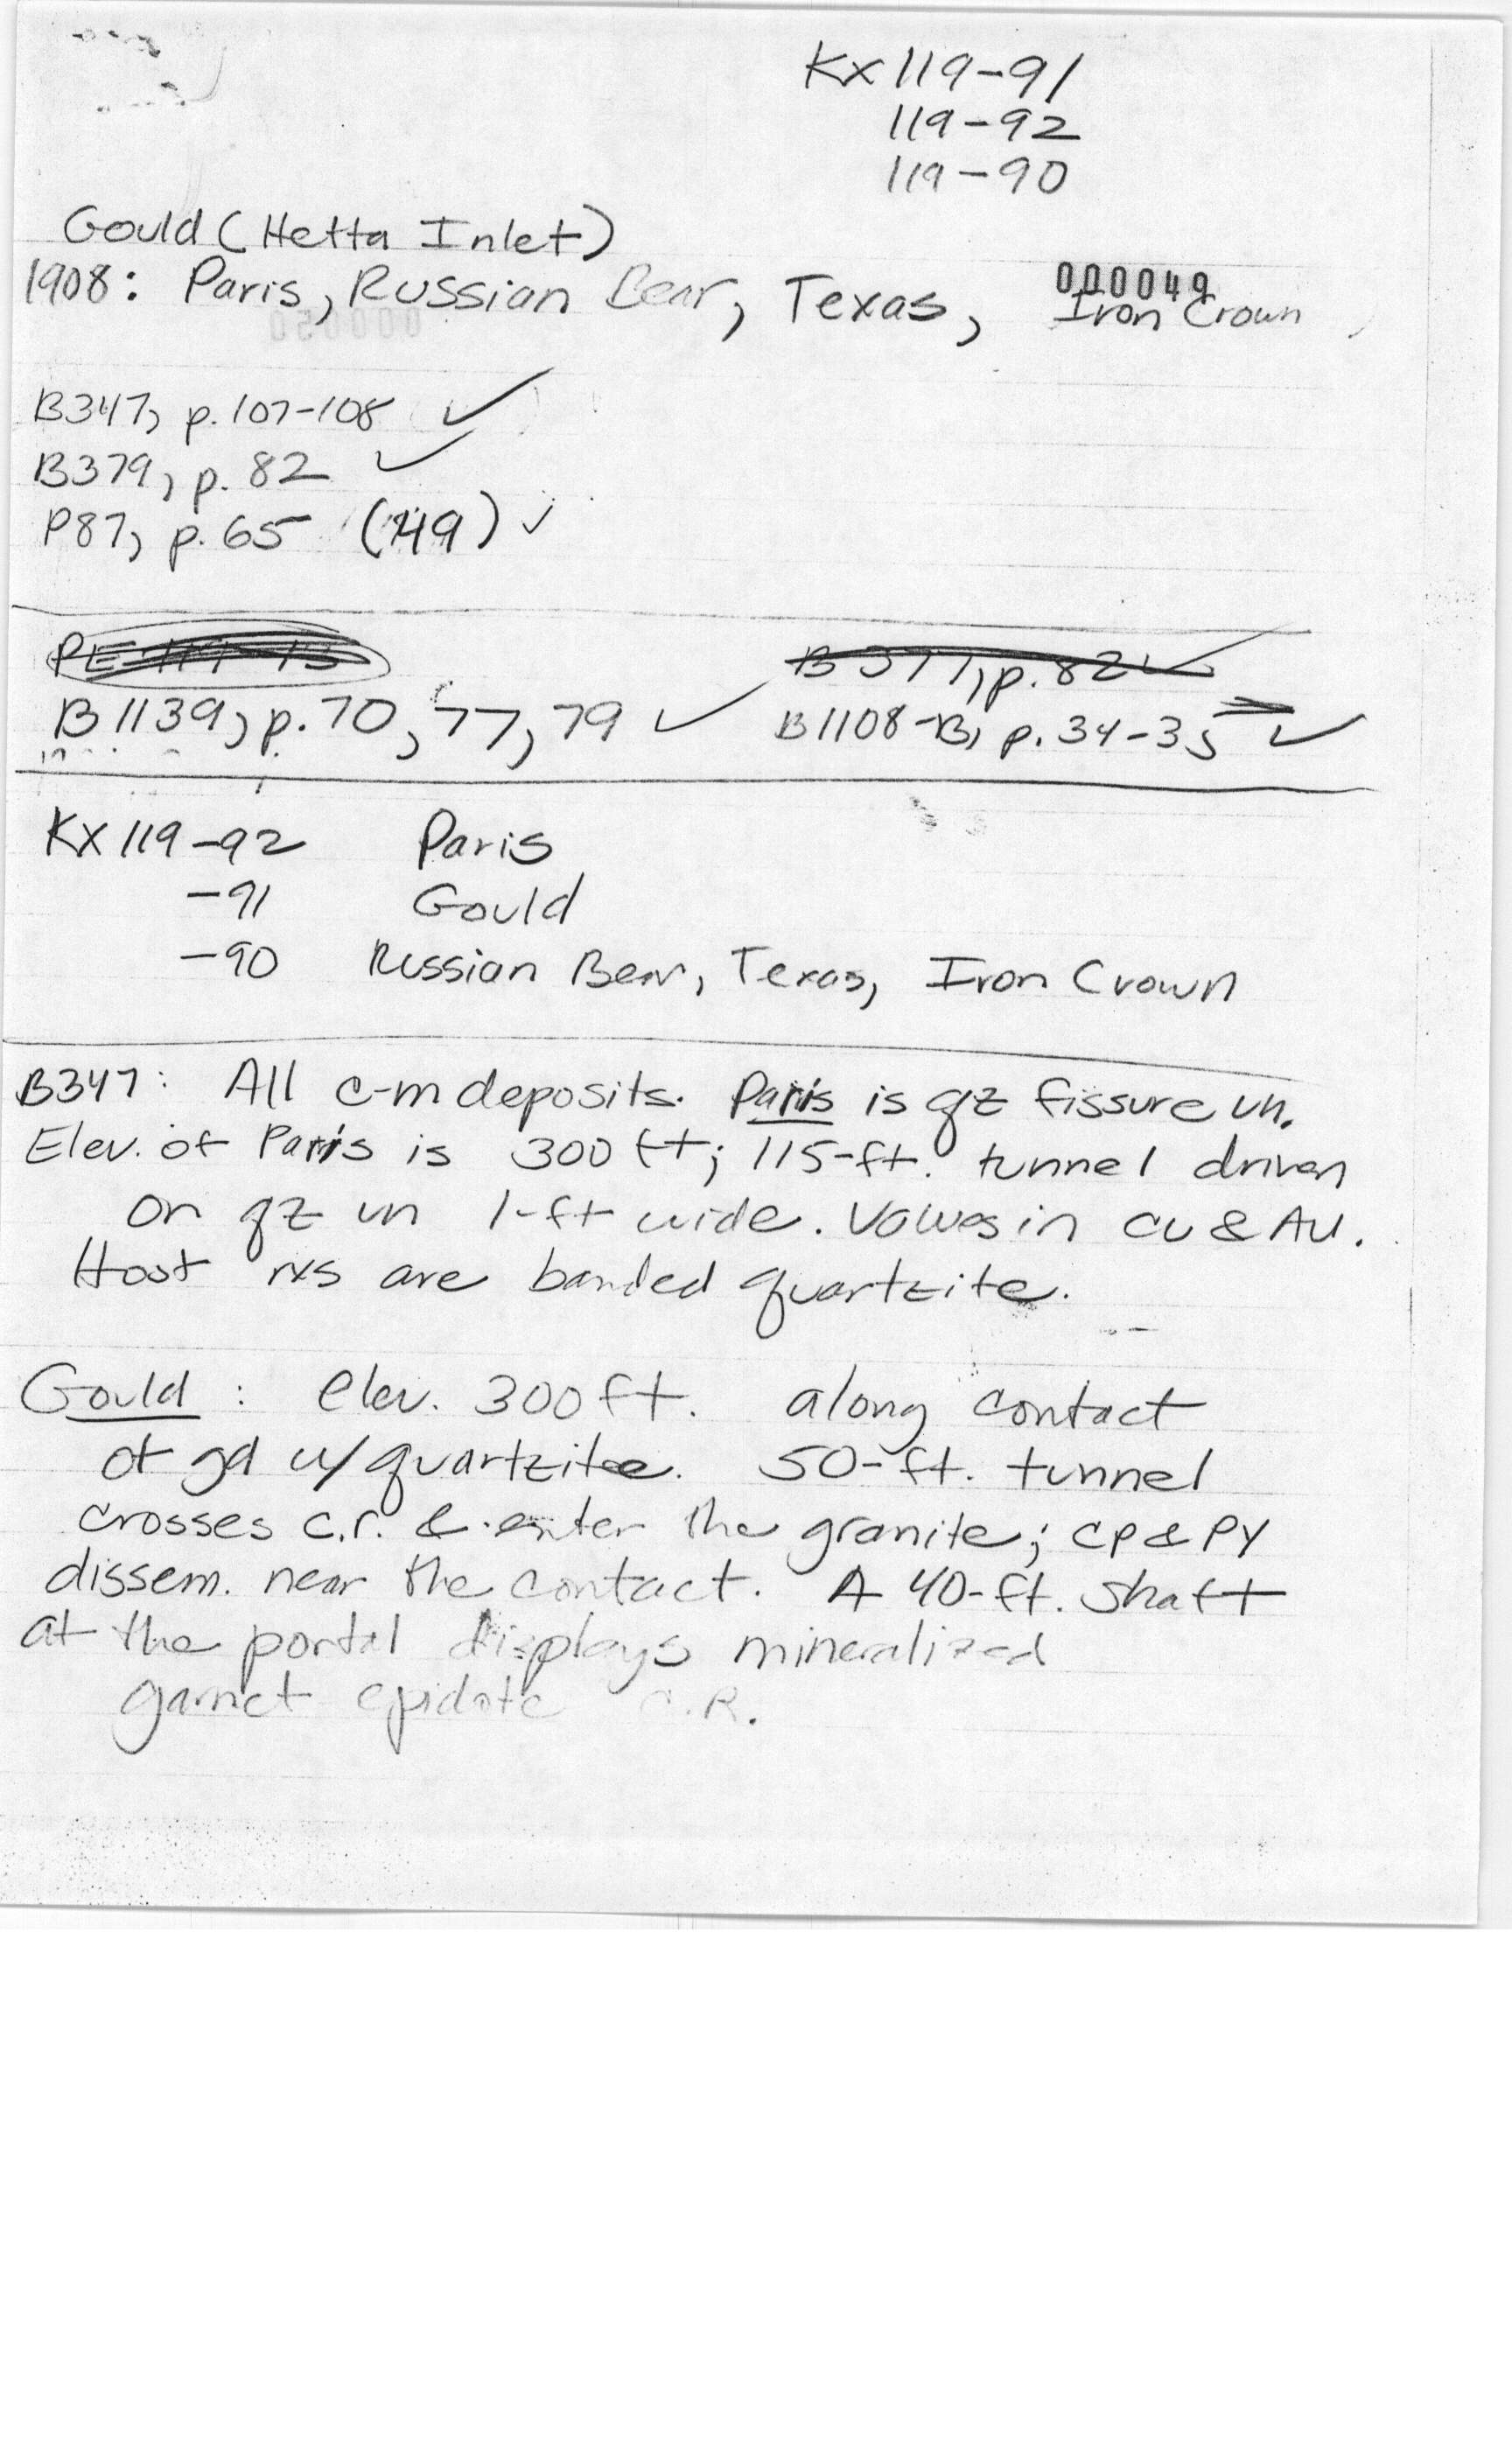 Kx 119-91
119-92
119-90
Gould (Hetta Inlet)
000049
1908: Paris, Russian Bear, Texas, Iron Crown
B347, p. 107-108 ✓
B379, p. 82 ✓
P87, p. 65 (49) ✓
B 377, p. 82 ✓
B 1139, p. 70, 77, 79 ✓ B1108-B, p. 34-35 ✓
Kx 119-92 Paris
-91 Gould
-90 Russian Bear, Texas, Iron Crown
B347: All c-m deposits. Paris is qz fissure vn.
Elev. of Paris is 300 ft; 115-ft. tunnel driven
on qz vn 1-ft wide. Values in Cu & Au.
Host rxs are banded quartzite.
Gould: elev. 300 ft. along contact
of gd w/ quartzite. 50-ft. tunnel
crosses c.r. & enter the granite; cp & py
dissem. near the contact. A 40-ft. shaft
at the portal displays mineralized
garnet epidote C.R.